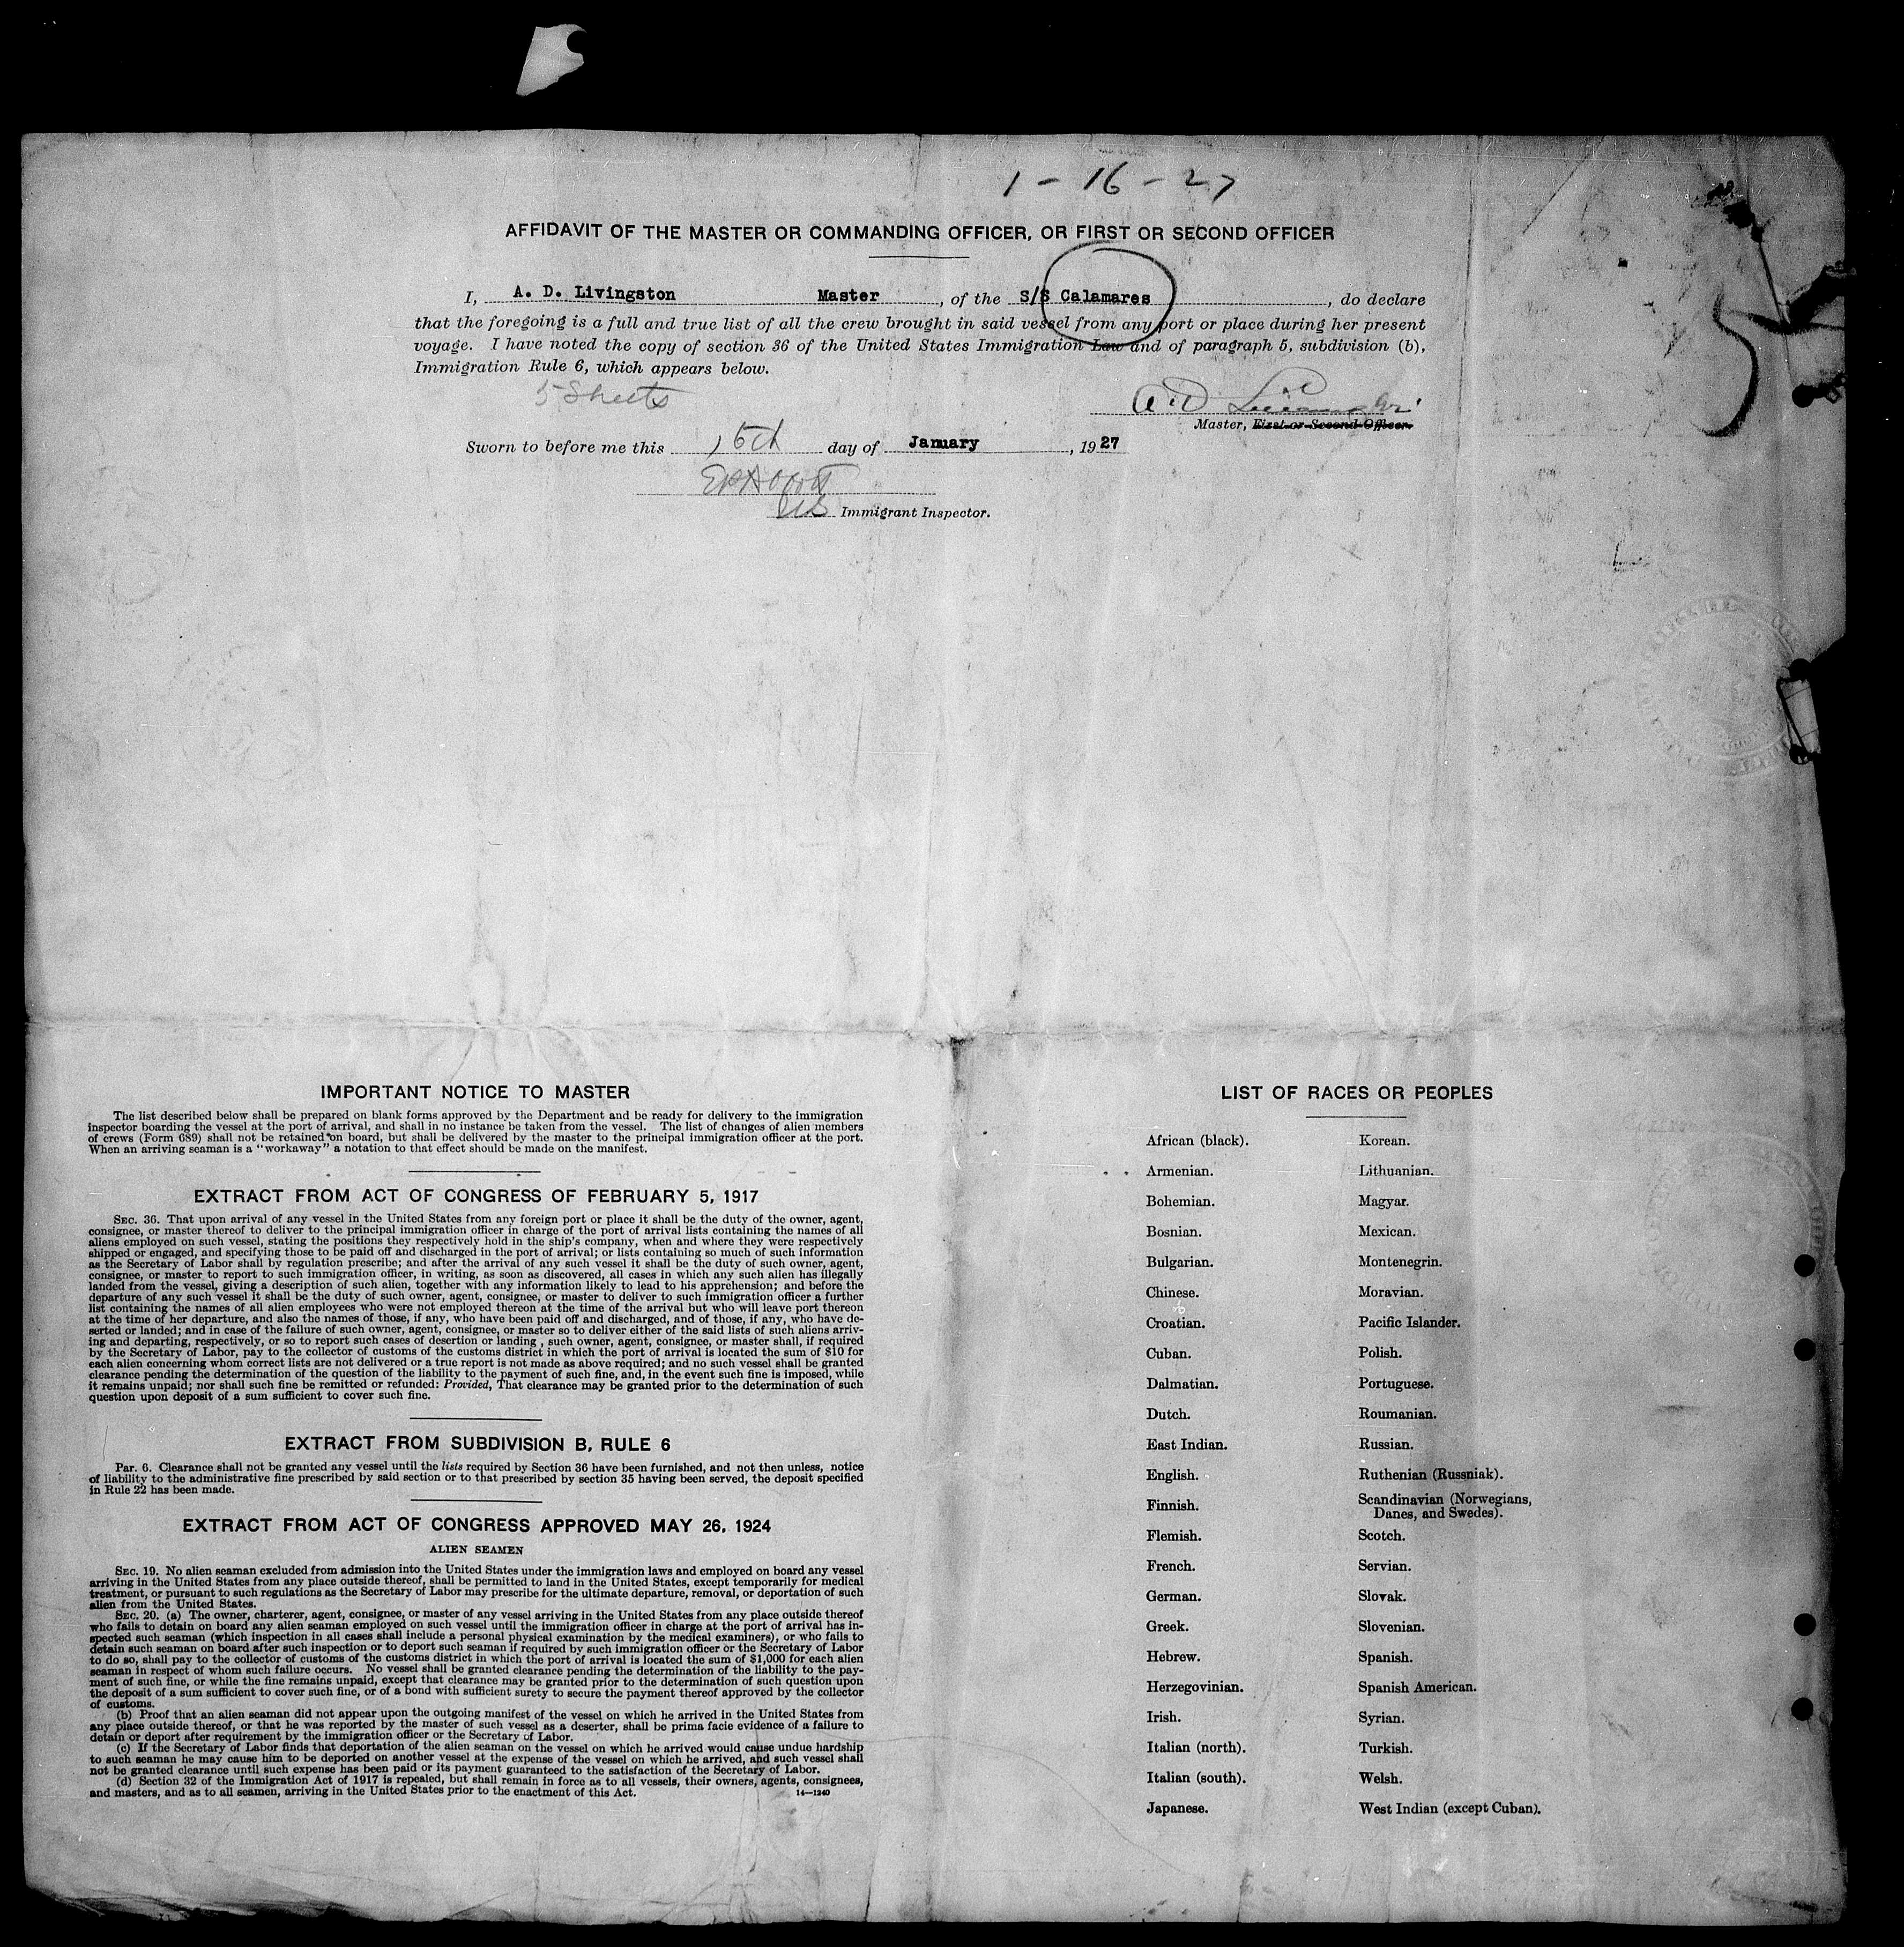 1-16-27
AFFIDAVIT OF THE MASTER OR COMMANDING OFFICER, OR FIRST OR SECOND OFFICER
I, A. D. Livingston Master, of the S/S Calamares, do declare
that the foregoing is a full and true list of all the crew brought in said vessel from any port or place during her present
voyage. I have noted the copy of section 36 of the United States Immigration Law and of paragraph 5, subdivision (b),
Immigration Rule 6, which appears below.
5
5 Sheets
Master, First or Second Officer.
Sworn to before me this 16th day of January, 1927
US Immigrant Inspector.
IMPORTANT NOTICE TO MASTER
The list described below shall be prepared on blank forms approved by the Department and be ready for delivery to the immigration
inspector boarding the vessel at the port of arrival, and shall in no instance be taken from the vessel. The list of changes of alien members
of crews (Form 689) shall not be retained on board, but shall be delivered by the master to the principal immigration officer at the port.
When an arriving seaman is a "workaway" a notation to that effect should be made on the manifest.
EXTRACT FROM ACT OF CONGRESS OF FEBRUARY 5, 1917
SEC. 36. That upon arrival of any vessel in the United States from any foreign port or place it shall be the duty of the owner, agent,
consignee, or master thereof to deliver to the principal immigration officer in charge of the port of arrival lists containing the names of all
aliens employed on such vessel, stating the positions they respectively hold in the ship's company, when and where they were respectively
shipped or engaged, and specifying those to be paid off and discharged in the port of arrival; or lists containing so much of such information
as the Secretary of Labor shall by regulation prescribe; and after the arrival of any such vessel it shall be the duty of such owner, agent,
consignee, or master to report to such immigration officer, in writing, as soon as discovered, all cases in which any such alien has illegally
landed from the vessel, giving a description of such alien, together with any information likely to lead to his apprehension; and before the
departure of any such vessel it shall be the duty of such owner, agent, consignee, or master to deliver to such immigration officer a further
list containing the names of all alien employees who were not employed thereon at the time of the arrival but who will leave port thereon
at the time of her departure, and also the names of those, if any, who have been paid off and discharged, and of those, if any, who have de-
serted or landed; and in case of the failure of such owner, agent, consignee, or master so to deliver either of the said lists of such aliens arriv-
ing and departing, respectively, or so to report such cases of desertion or landing , such owner, agent, consignee, or master shall, if required
by the Secretary of Labor, pay to the collector of customs of the customs district in which the port of arrival is located the sum of $10 for
each alien concerning whom correct lists are not delivered or a true report is not made as above required; and no such vessel shall be granted
clearance pending the determination of the question of the liability to the payment of such fine, and, in the event such fine is imposed, while
it remains unpaid; nor shall such fine be remitted or refunded: Provided, That clearance may be granted prior to the determination of such
question upon deposit of a sum sufficient to cover such fine.
EXTRACT FROM SUBDIVISION B, RULE 6
Par. 6. Clearance shall not be granted any vessel until the lists required by Section 36 have been furnished, and not then unless, notice
of liability to the administrative fine prescribed by said section or to that prescribed by section 35 having been served, the deposit specified
in Rule 22 has been made.
EXTRACT FROM ACT OF CONGRESS APPROVED MAY 26, 1924
ALIEN SEAMEN
SEC. 19. No alien seaman excluded from admission into the United States under the immigration laws and employed on board any vessel
arriving in the United States from any place outside thereof, shall be permitted to land in the United States, except temporarily for medical
treatment, or pursuant to such regulations as the Secretary of Labor may prescribe for the ultimate departure, removal, or deportation of such
alien from the United States.
SEC. 20. (a) The owner, charterer, agent, consignee, or master of any vessel arriving in the United States from any place outside thereof
who fails to detain on board any alien seaman employed on such vessel until the immigration officer in charge at the port of arrival has in-
spected such seaman (which inspection in all cases shall include a personal physical examination by the medical examiners), or who fails to
detain such seaman on board after such inspection or to deport such seaman if required by such immigration officer or the Secretary of Labor
to do so, shall pay to the collector of customs of the customs district in which the port of arrival is located the sum of $1,000 for each alien
seaman in respect of whom such failure occurs. No vessel shall be granted clearance pending the determination of the liability to the pay-
ment of such fine, or while the fine remains unpaid, except that clearance may be granted prior to the determination of such question upon
the deposit of a sum sufficient to cover such fine, or of a bond with sufficient surety to secure the payment thereof approved by the collector
of customs.
(b) Proof that an alien seaman did not appear upon the outgoing manifest of the vessel on which he arrived in the United States from
any place outside thereof, or that he was reported by the master of such vessel as a deserter, shall be prima facie evidence of a failure to
detain or deport after requirement by the immigration officer or the Secretary of Labor.
(c) If the Secretary of Labor finds that deportation of the alien seaman on the vessel on which he arrived would cause undue hardship
to such seaman he may cause him to be deported on another vessel at the expense of the vessel on which he arrived, and such vessel shall
not be granted clearance until such expense has been paid or its payment guaranteed to the satisfaction of the Secretary of Labor.
(d) Section 32 of the Immigration Act of 1917 is repealed, but shall remain in force as to all vessels, their owners, agents, consignees,
and masters, and as to all seamen, arriving in the United States prior to the enactment of this Act. 14—1240
LIST OF RACES OR PEOPLES
African (black). Korean.
Armenian. Lithuanian.
Bohemian. Magyar.
Bosnian. Mexican.
Bulgarian. Montenegrin.
Chinese. Moravian.
Croatian. Pacific Islander.
Cuban. Polish.
Dalmatian. Portuguese.
Dutch. Roumanian.
East Indian. Russian.
English. Ruthenian (Russniak).
Finnish. Scandinavian (Norwegians,
Danes, and Swedes).
Flemish. Scotch.
French. Servian.
German. Slovak.
Greek. Slovenian.
Hebrew. Spanish.
Herzegovinian. Spanish American.
Irish. Syrian.
Italian (north). Turkish.
Italian (south). Welsh.
Japanese. West Indian (except Cuban).